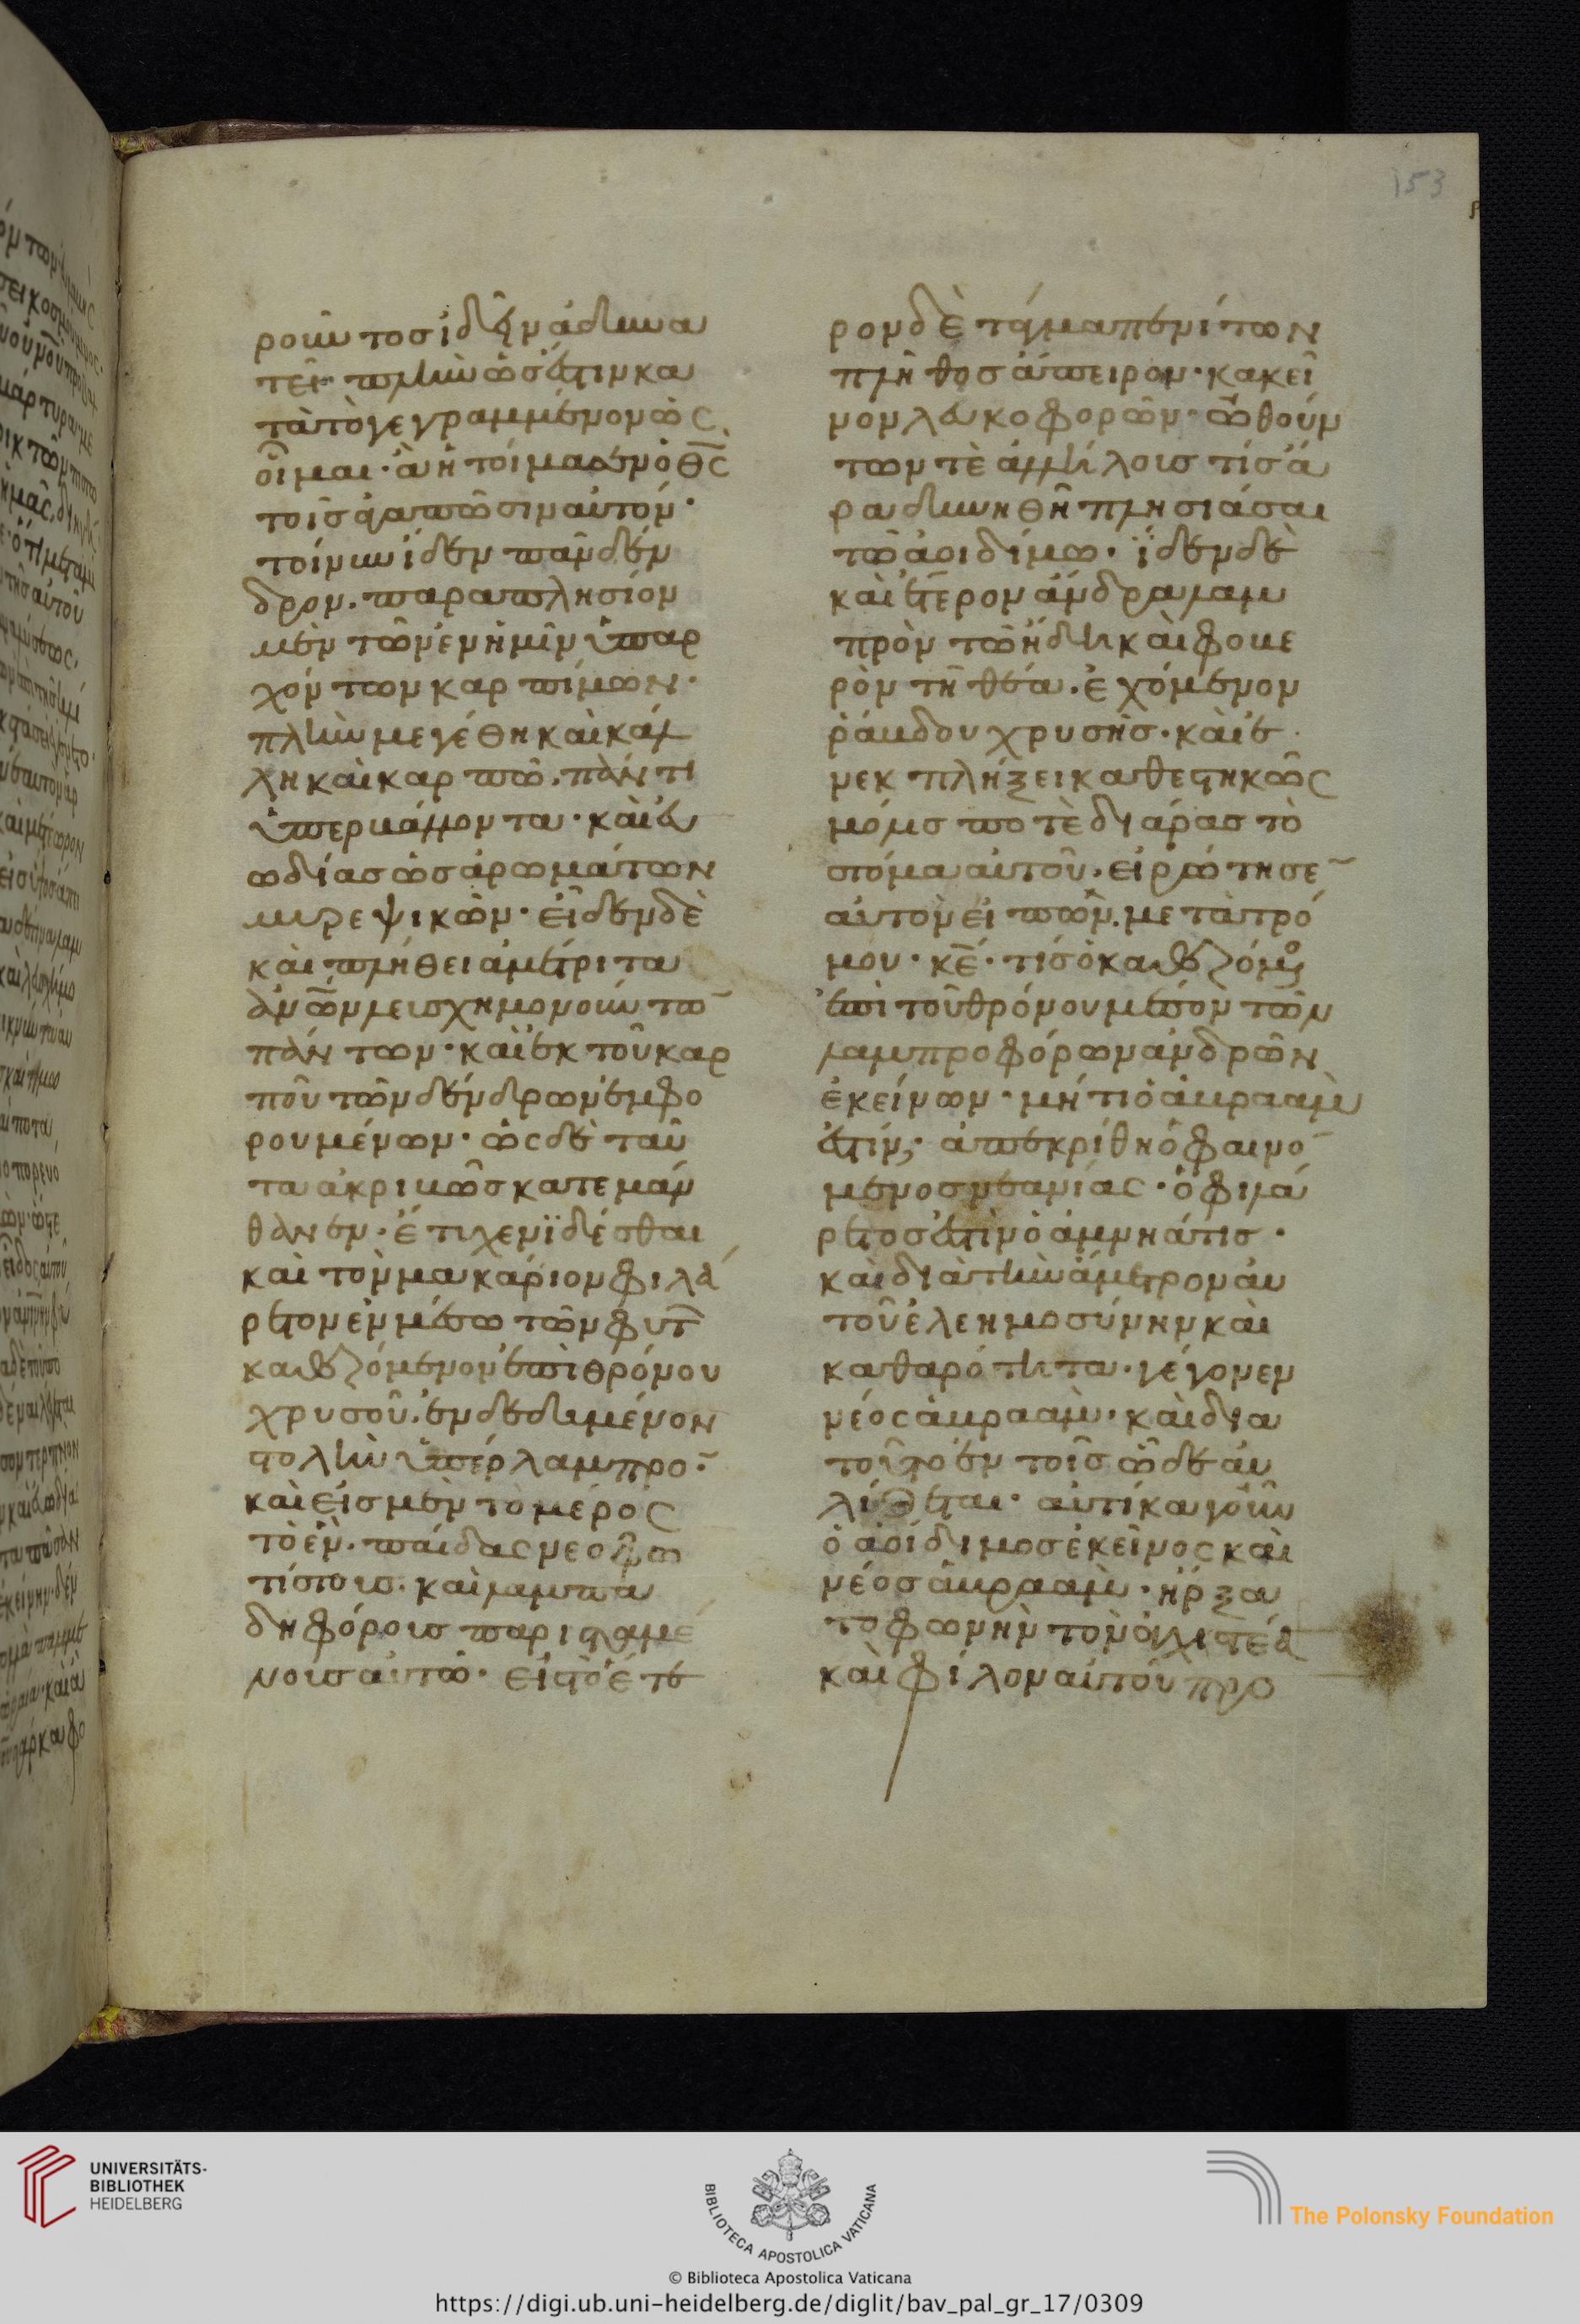 153
ροῦντος ἰδεῖν ἀδυνα
τεῖ· πλὴν ὡς ἔστιν κα
τὰ τὸ γεγραμμένον ὡς
οἶμαι· ἃ ἡτοίμασεν ὁ θς
τοῖς ἀγαπῶσιν αὐτόν·
τοίνυν ἴδεν πᾶν δέν
δρον. παραπλησίον
μὲν τῶν ἐν ἡμῖν ὑπαρ
χόντων καρπίμων·
πλὴν μεγέθη καὶ κάλ
λη καὶ καρπῶ. πάντη
ὑπερβάλλοντα· καὶ εὐ
ωδίας ὡς ἀρωμάτων
μυρεψικῶν· εἶδεν δὲ
καὶ πλήθει ἀμέτριτα
ἀνων μεισχημονούντω
πάντων· καὶ ἐκ τοῦ καρ
ποῦ τῶν δένδρων ἐμφο
ρουμένων· ὡς δὲ ταῦ
τα ἀκριβῶς κατεμάν
θανεν· ἔτυχεν ἰδέσθαι
καὶ τὸν μακάριον φιλά
ρετον ἐν μέσω τῶν φυτ
καθεζόμενον ἐπὶ θρόνου
χρυσοῦ. ἐνδεδυμένον
στολὴν ὑπέρλαμπρο
καὶ εἰς μὲν τὸ μέρος
τὸ ἕν. παίδας νεοφω
τίστοις. καὶ λαμπα
δηφόροις παρισταμέ
νοις αὐτῶ· εἰς τὸ ἕτε
ρον δὲ τάγμα πενίτων
πλῆθος ἄπειρον· κακεῖ
νον λευκοφορῶν· ὠθούν
των τὲ ἀλλήλοις τίς ἄ
ρα δυνηθῆ πλησιάσαι
τῶ ἀοιδίμω. ἴδεν δὲ
καὶ ἕτερον ἄνδρα λαμ
πρὸν τῶ ἤδει καὶ φοβε
ρὸν τῆ θέα. ἐχόμενον
ῥάβδου χρυσῆς. καὶ ἐ
νεκπλήξει καθεστηκὼς
μόλις ποτὲ διάρας τὸ
στόμα αὐτοῦ. εἰρώτησε
αὐτὸν εἰπῶν. μετὰ τρό
μου· κε· τίς ὁ καθεζόμενος
ἐπὶ τοῦ θρόνου μέσον τῶν
λαμπροφόρων ἀνδρῶν
ἐκείνων· μή τι ὁ ἀβραὰμ
ἐστίν; ἀπεκρίθη ὁ φαινό
μενος νεανίας· ὁ φιλά
ρετος ἐστὶν ὁ ἀμνηάτις·
καὶ διὰ τὴν ἄμετρον αὐ
τοῦ ἐλεημοσύνην καὶ
καθαρότητα. γέγονεν
νέος ἀβραὰμ· καὶ δια
τοῦτο ἐν τοῖς ὧδε αὐ
λίζεται· αὐτίκα γοῦν
ὁ ἀοίδιμος ἐκεῖνος καὶ
νέος ἀβραὰμ. ἤρξα
το φωνὴν τὸν οἰκιστέα
καὶ φίλον αὐτοῦ προ
UNIVERSITÄTS-
BIBLIOTHEK
HEIDELBERG
BIBLIOTECA APOSTOLICA VATICANA
The Polonsky Foundation
© Biblioteca Apostolica Vaticana
https://digi.ub.uni-heidelberg.de/diglit/bav_pal_gr_17/0309